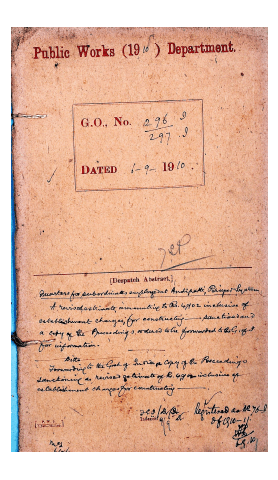 Public Works (1910) Department.
G.O., No. 296 I
297 I
DATED 1-9-1910.
[Despatch Abstract.]
Quarters for subordinates employed at Periyar System
A revised estimate amounting to Rs. 4,902 inclusive of
establishment charges, for constructing — sanctioned
a copy of the Proceedings ordered to be forwarded to the G. of I
for information.
Ditto
Forwarding to the Govt of India a copy of the Proceedings
sanctioning a revised estimate of Rs. 4,902 inclusive of
establishment charges for constructing
Registered as No 70-I
of 1910-11